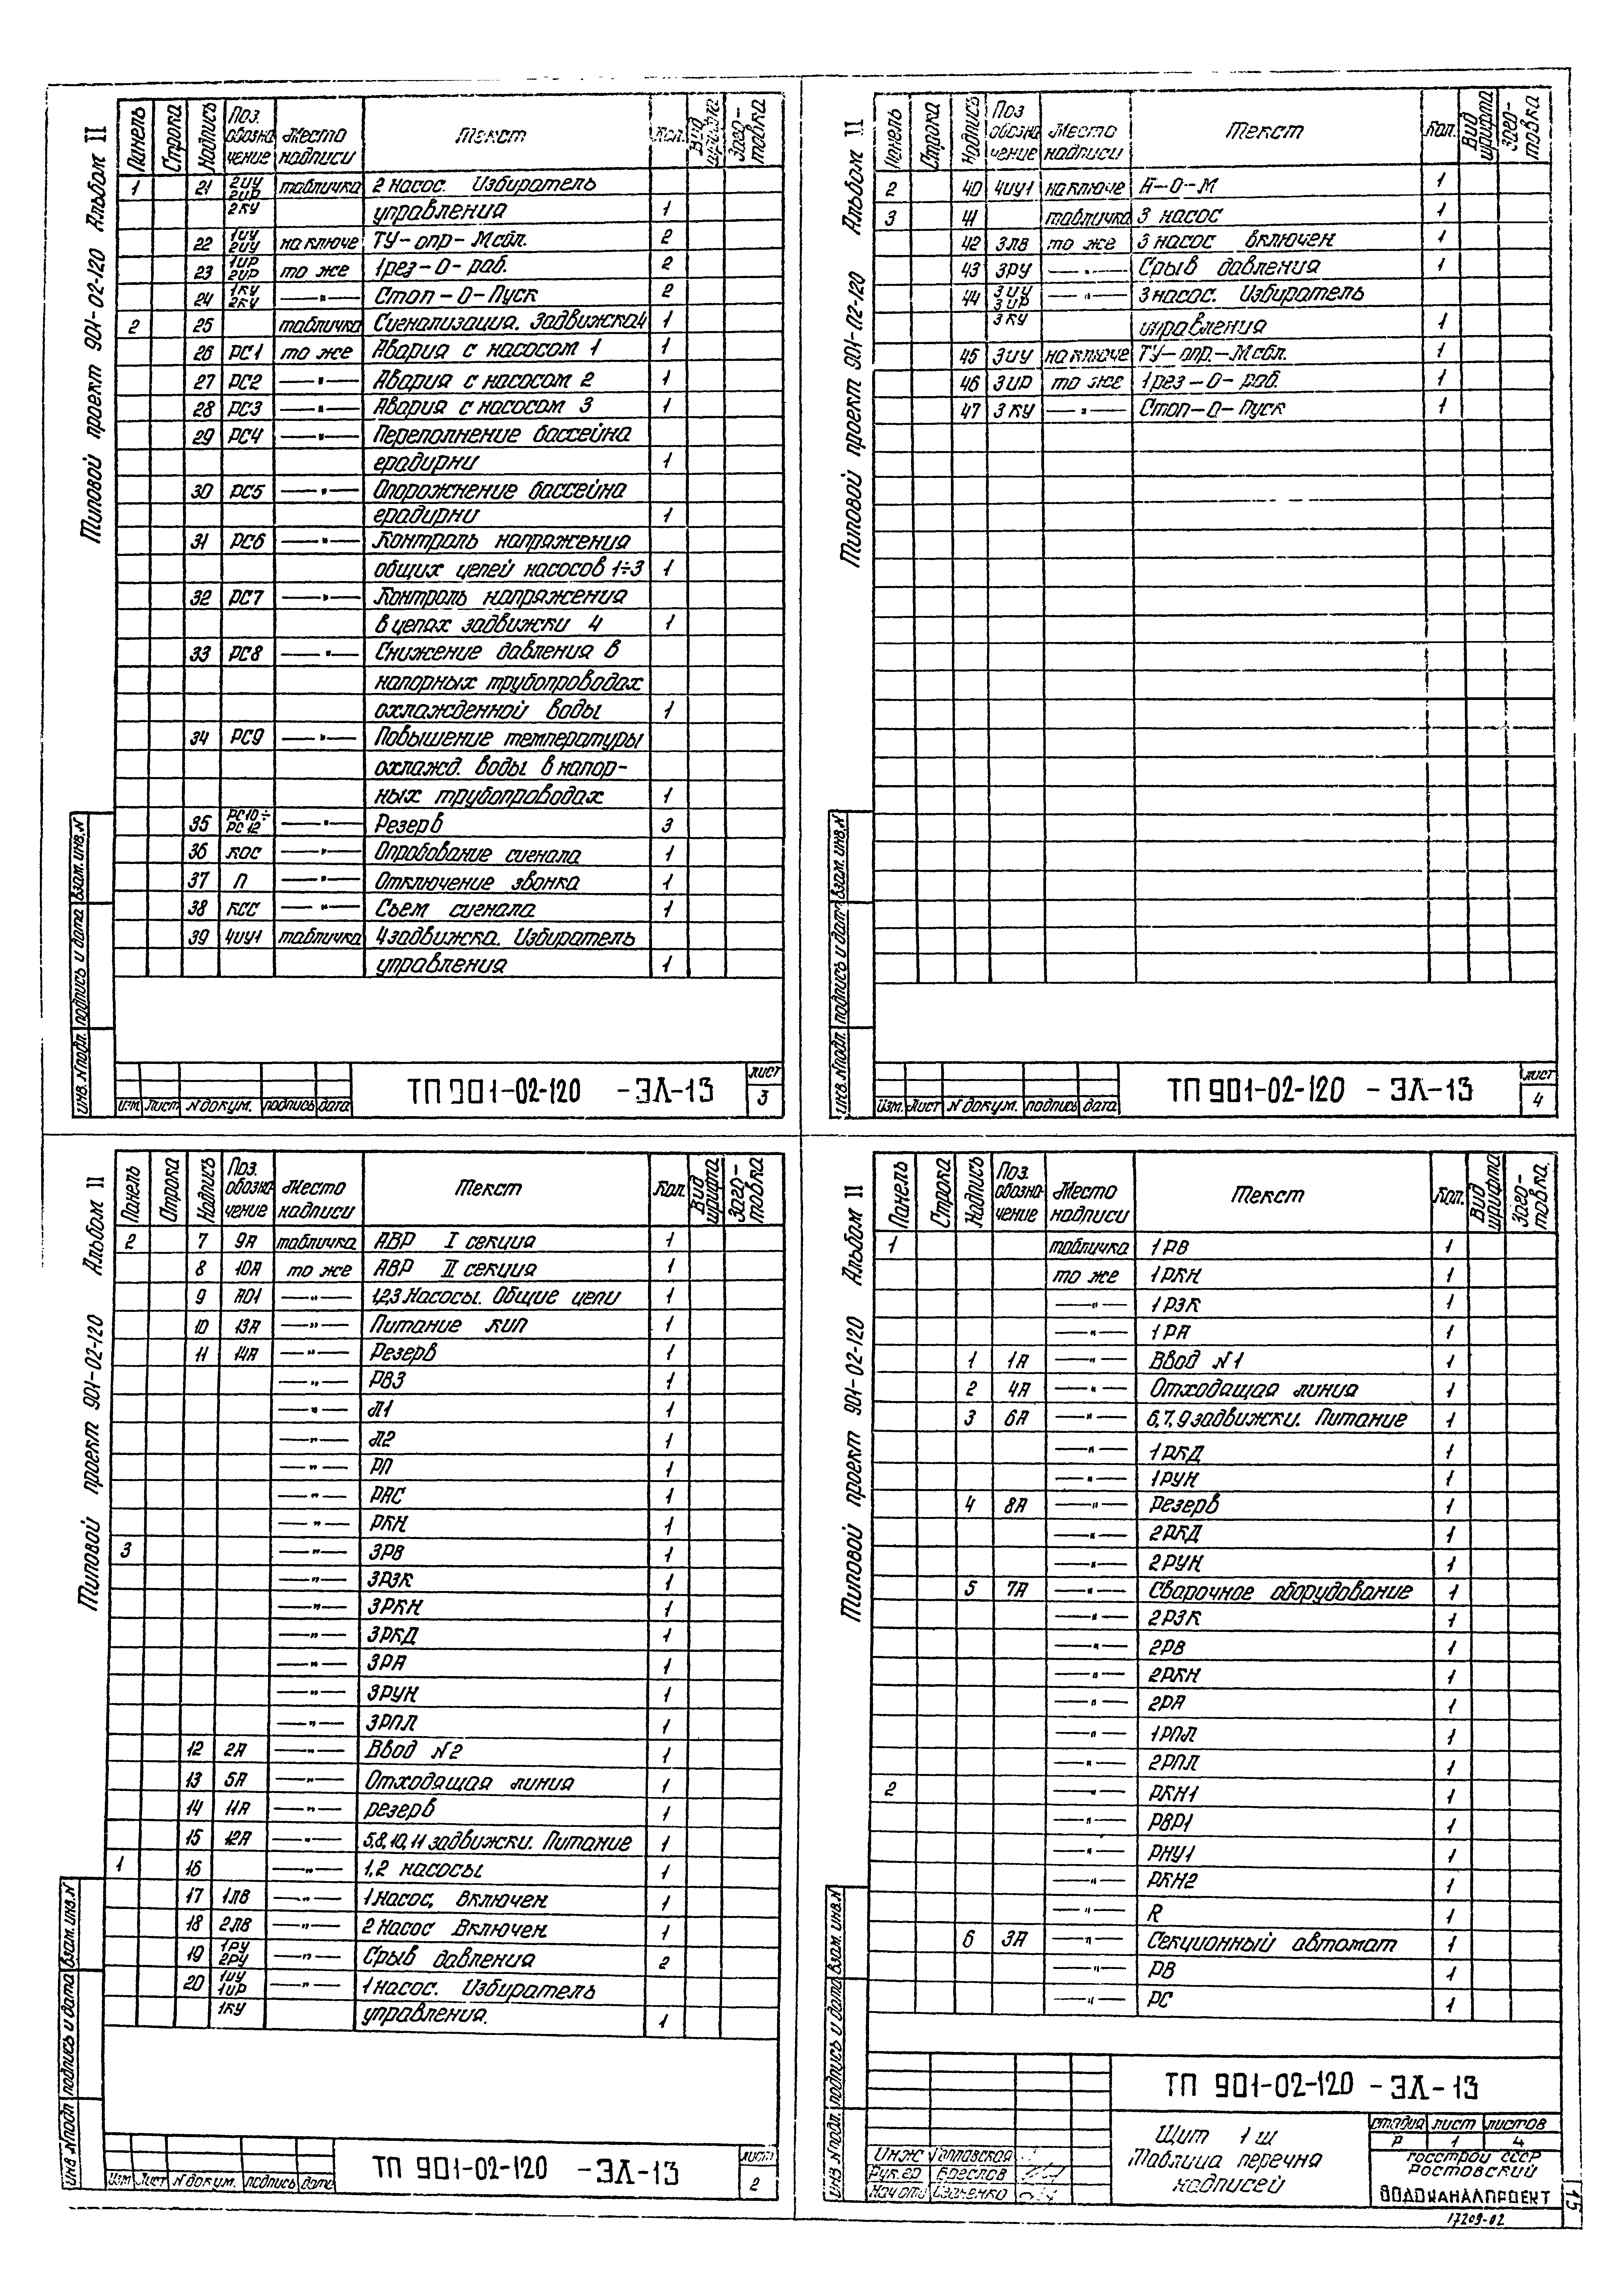 Типовой проект 901-02-120 Альбом II
Панель Строка Надпись Поз. обозначение Место надписи Текст Кол. Вид шрифта Заготовка
1 21 2УУ 2УР табличка 2 насос. Избиратель
2КУ управления 1
22 1УУ 2УУ на ключе ТУ-опр-Мсбл. 2
23 1УР 2УР то же 1рез-0-раб. 2
24 1КУ 2КУ —"— Стоп-0-Пуск 2
2 25 табличка Сигнализация. Задвижка4 1
26 РС1 то же Авария с насосом 1 1
27 РС2 —"— Авария с насосом 2 1
28 РС3 —"— Авария с насосом 3 1
29 РС4 —"— Переполнение бассейна
градирни 1
30 РС5 —"— Опорожнение бассейна
градирни 1
31 РС6 —"— Контроль напряжения
общих цепей насосов 1÷3 1
32 РС7 —"— Контроль напряжения
в цепях задвижки 4 1
33 РС8 —"— Снижение давления в
напорных трубопроводах
охлажденной воды 1
34 РС9 —"— Повышение температуры
охлажд. воды в напор-
ных трубопроводах 1
35 РС10÷ РС12 —"— Резерв 3
36 КОС —"— Опробование сигнала 1
37 П —"— Отключение звонка 1
38 КСС —"— Съем сигнала 1
39 4УУ1 табличка 4 задвижка. Избиратель
управления 1
инв. N подл. подпись и дата взам. инв. N
Изм. Лист N докум. подпись дата
ТП 901-02-120 -ЭЛ-13
лист
3
Типовой проект 901-02-120 Альбом II
Панель Строка Надпись Поз обозначение Место надписи Текст Кол. Вид шрифта Заготовка
2 40 4УУ1 на ключе А-О-М 1
3 41 табличка 3 насос 1
42 3ЛВ то же 3 насос включен 1
43 3РУ —"— Срыв давления 1
44 3УУ 3УР —"— 3 насос. Избиратель
3КУ управления 1
45 3УУ на ключе ТУ-опр.-Мсбл. 1
46 3УР то же 1рез-0-раб. 1
47 3КУ —"— Стоп-0-Пуск 1
инв. N подл. подпись и дата взам. инв. N
Изм. Лист N докум. подпись дата
ТП 901-02-120 -ЭЛ-13
лист
4
Типовой проект 901-02-120 Альбом II
Панель Строка Надпись Поз. обозначение Место надписи Текст Кол. Вид шрифта Заготовка
2 7 9А табличка АВР I секция 1
8 10А то же АВР II секция 1
9 А01 —"— 1,2,3 Насосы. Общие цепи 1
10 13А —"— Питание КИП 1
11 14А —"— Резерв 1
—"— РВ3 1
—"— Л1 1
—"— Л2 1
—"— РП 1
—"— РАС 1
—"— РКН 1
3 —"— 3РВ 1
—"— 3РЗК 1
—"— 3РКН 1
—"— 3РКД 1
—"— 3РА 1
—"— 3РУН 1
—"— 3РПЛ 1
12 2А —"— Ввод N2 1
13 5А —"— Отходящая линия 1
14 11А —"— резерв 1
15 12А —"— 5,8,10,11 задвижки. Питание 1
1 16 —"— 1,2 насосы 1
17 1ЛВ —"— 1 насос, включен 1
18 2ЛВ —"— 2 насос Включен 1
19 1РУ 2РУ —"— Срыв давления 2
20 1УУ 1УР —"— 1 насос. Избиратель
1КУ управления. 1
инв N подл подпись и дата взам. инв. N
Изм Лист N докум. подпись дата
ТП 901-02-120 -ЭЛ-13
лист
2
Типовой проект 901-02-120 Альбом II
Панель Строка Надпись Поз. обозначение Место надписи Текст Кол. Вид шрифта Заготовка.
1 табличка 1РВ 1
то же 1РКН 1
—"— 1РЗК 1
—"— 1РА 1
1 1А —"— Ввод N1 1
2 4А —"— Отходящая линия 1
3 6А —"— 6,7,9 задвижки. Питание 1
—"— 1РКД 1
—"— 1РУН 1
4 8А —"— резерв 1
—"— 2РКД 1
—"— 2РУН 1
5 7А —"— Сварочное оборудование 1
—"— 2РЗК 1
—"— 2РВ 1
—"— 2РКН 1
—"— 2РА 1
—"— 1РПЛ 1
—"— 2РПЛ 1
2 —"— РКН1 1
—"— РВР1 1
—"— РНУ1 1
—"— РКН2 1
—"— R 1
6 3А —"— Секционный автомат 1
—"— РВ 1
—"— РС 1
инв N подл. подпись и дата взам. инв. N
ТП 901-02-120 -ЭЛ-13
Щит 1щ
Таблица перечня
надписей
стадия лист листов
Р 1 4
госстрой СССР
Ростовский
ВОДОКАНАЛПРОЕКТ
Инж
Рук.гр Бреслав
15
17209-02